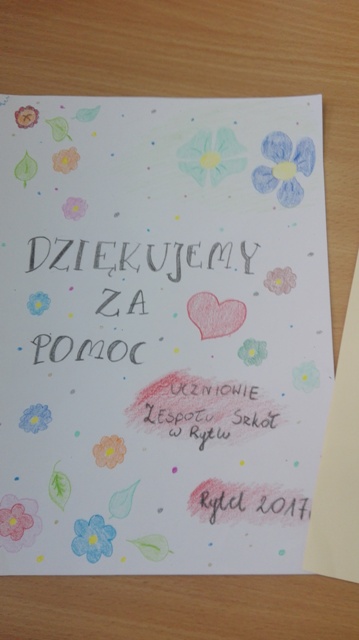 DZIĘKUJEMY
ZA
POMOC
UCZNIOWIE
ZESPOŁU SZKÓŁ
w Rytlu
Rytel 2017r